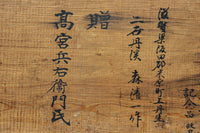 記念品
滋賀県坂田郡米原町上丹生
丹渓 森清一作
贈
髙宮兵右衛門氏